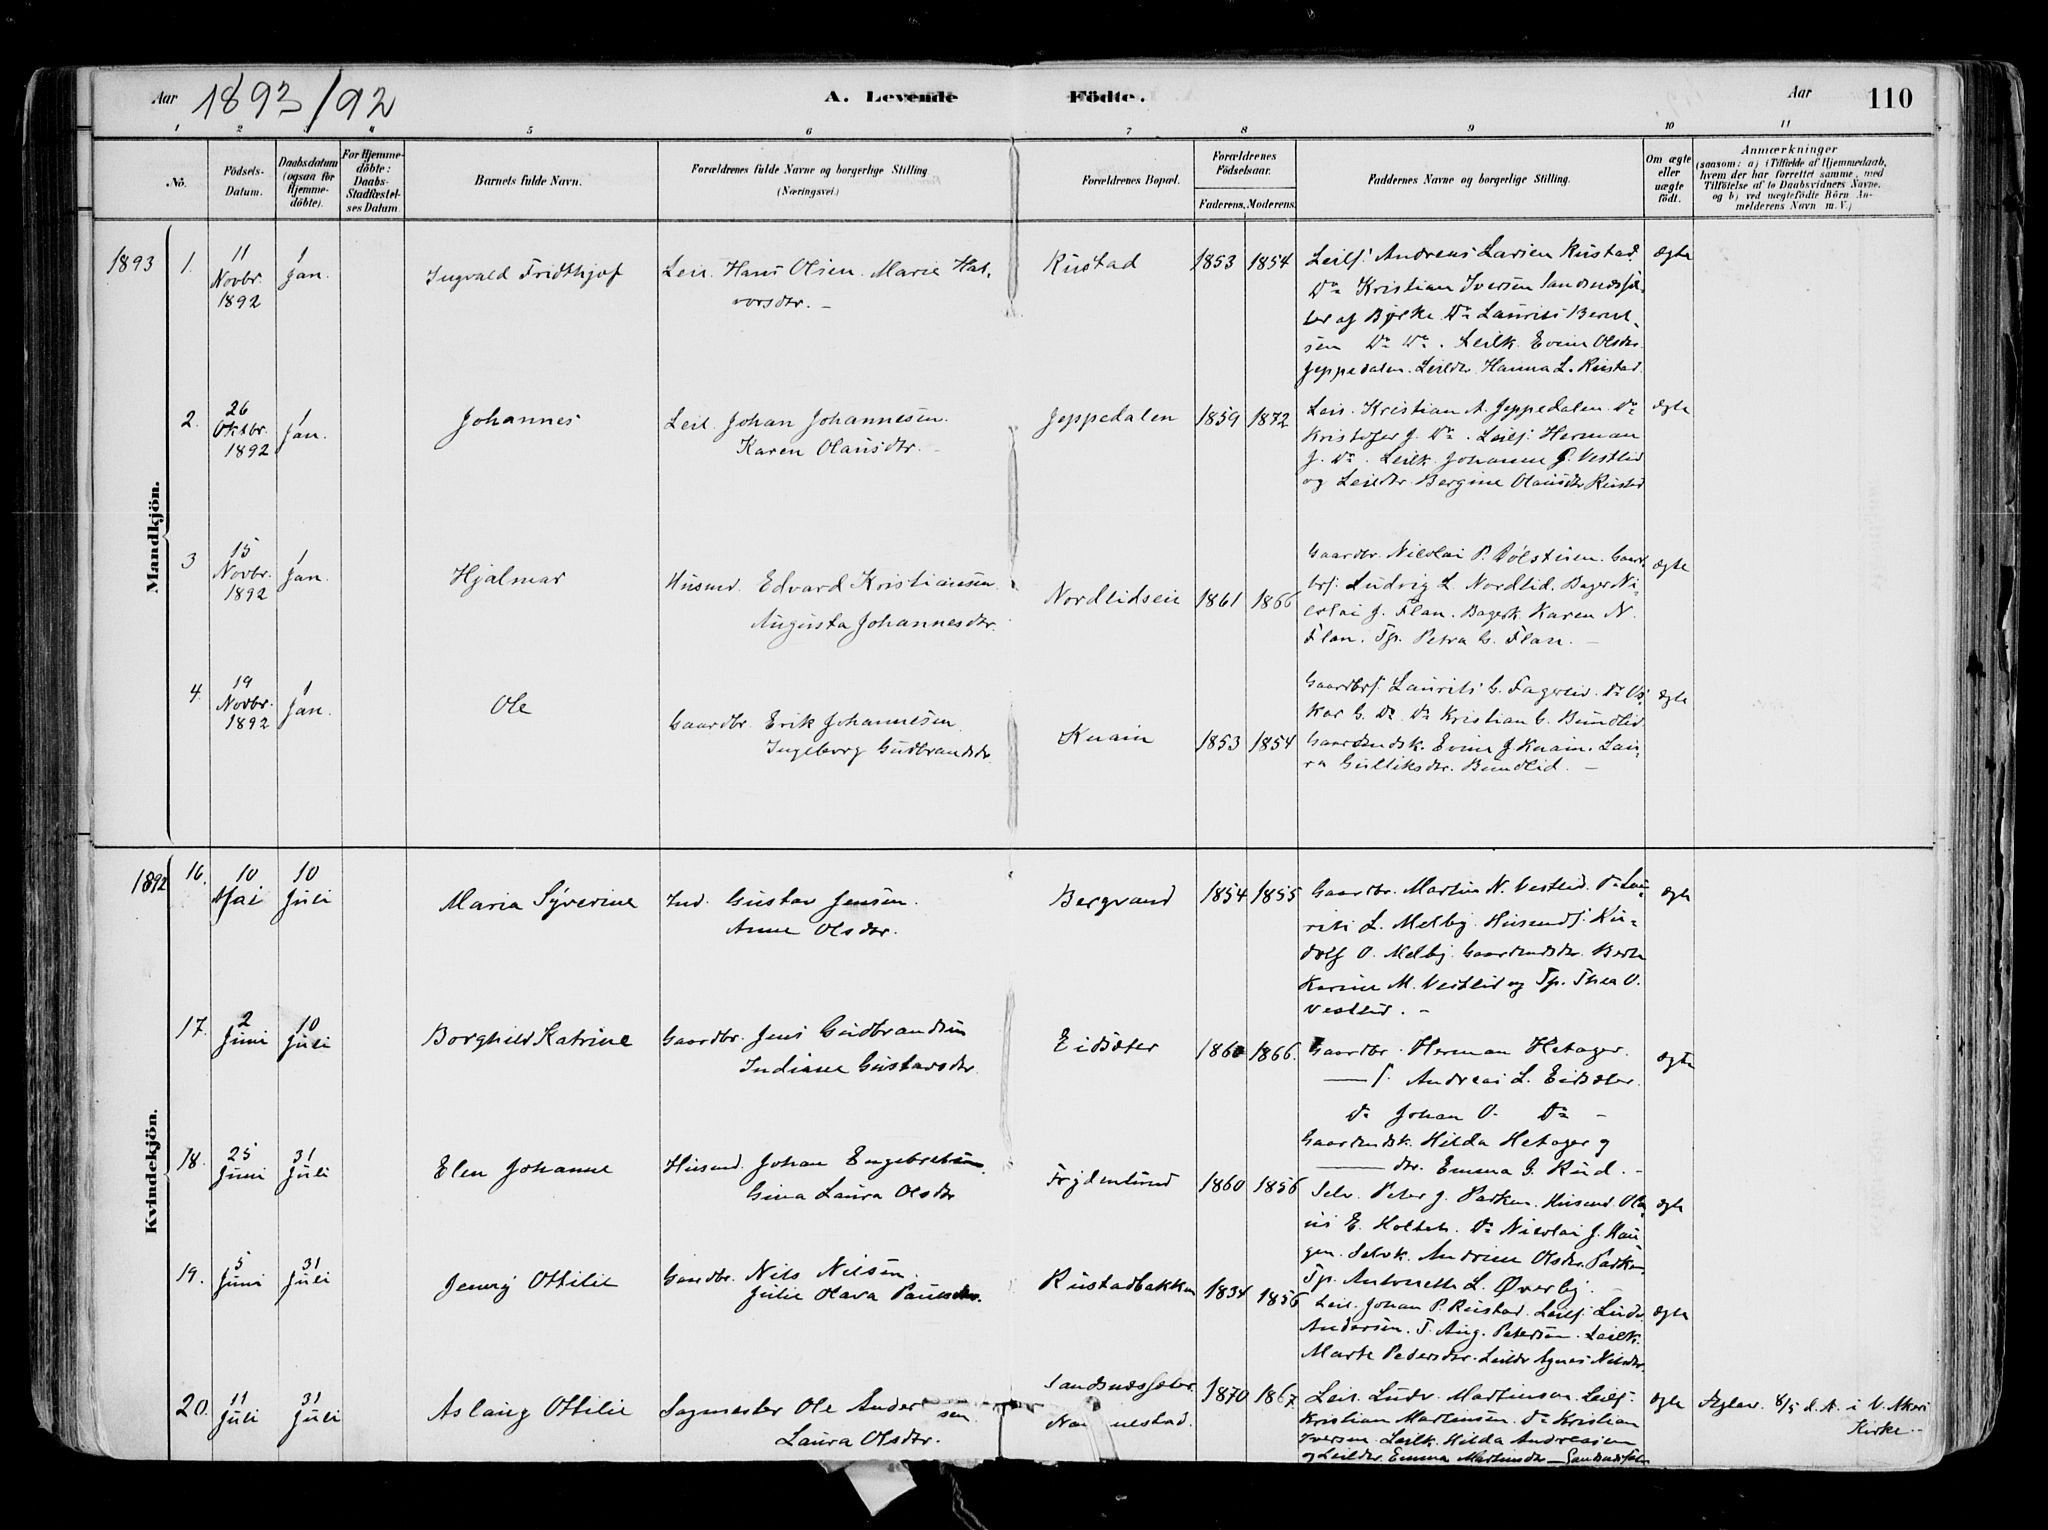 Aar 1893/92 A. Levende Födte. Aar 110
1 2 3 4 5 6 7 8 9 10 11
No.
Födsels-Datum.
Daabsdatum (ogsaa for Hjemme-döbte).
For Hjemme-döbte: Daabs-Stadfæstel-ses Datum
Barnets fulde Navn.
Forældrenes fulde Navne og borgerlige Stilling (Næringsvei)
Forældrenes Bopæl.
Forældrenes Födselsaar.
Faderens. Moderens.
Faddernes Navne og borgerlige Stilling.
Om ægte eller uægte födt.
Anmærkninger
(saasom: a) i Tilfælde af Hjemmedaab,
hvem der har forrettet samme, med
Tilföielse af to Daabsvidners Navne,
og b) ved uægtefödte Börn An-
melderens Navn m. V.)
Mandkjön.
1893 1. 11 Novbr. 1892 1 Jan.
Ingvald Fridthjof
Leil. Hans Olsen. Marie Hal-
vorsdtr. -
Rustad 1853 1854
Leilf. Andreas Larsen Rustad.
Do Kristian Iversen Sandnæssæ-
ter af Bjerke. Do Laurits Bernt-
sen Do Do. Leilk. Evine Olsdtr.
Jeppedalen. Leildtr. Hanna L. Rustad.
ægte
2. 26 Oktbr. 1892 1 Jan.
Johannes
Leil. Johan Johannesen.
Karen Olausdtr. -
Jeppedalen 1859 1872
Leil. Kristian A. Jeppedalen. Do
Kristofer J. Do. Leilf. Herman
J. Do. Leilk. Johanne J. Vestlid
og Leildtr. Bergine Olausdtr Rustad
ægte
3 15 Novbr. 1892 1 Jan.
Hjalmar
Husmd. Edvard Kristiansen.
Augusta Johannesdtr.
Nordlidseie 1861 1866
Gaardbr. Nicolai P. Dölsteien. Gaard-
brf. Ludvig L. Nordlid. Bager Ni-
colai J. Flan. Bagerk. Karen N.
Flan. Tp. Petra G. Flan. -
ægte
4. 19 Novbr. 1892 1 Jan.
Ole
Gaardbr. Erik Johannesen.
Ingeborg Gudbrandsdtr.
Knain 1853 1854
Gaardbrf. Laurits G. Fagerlid. Do Os-
kar G. Do. Do Kristian G. Bundlid.
Gaardmdsk. Evine J. Knain. Lau-
ra Gulliksdtr. Bundlid. -
ægte
Kvindekjön.
1892 16. 10 Mai 10 Juli
Maria Syverine
Ind. Gustav Jensen.
Anne Olsdtr.
Bergvand 1854 1855
Gaardbr. Martin N. Vestlid. Do Lau-
rits L. Melby. Husmdf. Ru-
dolf O. Melby. Gaardmdsdtr. Berte
Karine M. Vestlid og Tp. Thea O.
Vestlid. -
ægte
17. 2 Juni 10 Juli
Borghild Katrine
Gaardbr. Jens Gudbrandsen
Indiane Gustavsdtr.
Eidsæter 1860 1866.
Gaardbr. Herman Hetager.
—— f. Andreas L. Eidsæter.
Do Johan O. Do -
Gaardmdsk. Hilda Hetager og
—— dtr. Emma G. Rud. -
ægte
18. 25 Juni 31 Juli
Elen Johanne
Husmd. Johan Engebretsen.
Gina Laura Olsdtr
Frydenlund 1860 1856
Selv. Peter J. Parken. Husmd. Ola-
us E. Holteh. Do Nicolai J. Hau-
gen. Selvk. Andrine Olsdtr. Parken.
Tp. Antonette L. Øverby.
ægte
19. 5 Juni 31 Juli
Jenny Ottilie
Gaardbr. Nils Nilsen.
Julie Olava Paulsdtr.
Rustadbakken 1834 1856
Leil. Johan P. Rustad. Leilf. Ludv.
Andersen. T. Aug. Petersen. Leilk.
Marte Pedersdtr. Leildtr Agnes Nilsdtr.
ægte
20. 11 Juli 31 Juli
Aslaug Ottilie
Sagmester Ole Andersen
Laura Olsdtr.
Sandsnæssæter.
Nannestad.
1870 1867.
Leil. Ludv. Martinsen. Leilf.
Kristian Martinsen. Do Kristian
Iversen. Leilk. Hilda Andreasen
og Leildtr. Emma Martinsdtr - Sandsnæssæter
ægte
8/5 d. A. i V. Akers
Kirke. -